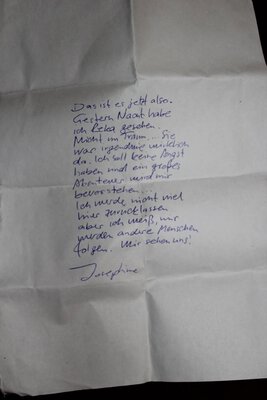 Das ist es jetzt also.
Gestern Nacht habe
ich Reka gesehen.
Nicht im Traum... Sie
war irgendwie wirklich
da. Ich soll keine Angst
haben und ein großes
Abenteuer wird mir
bevorstehen...
Ich werde nicht viel
hier zurücklassen
aber ich weiß, mir
werden andere Menschen
folgen. Wir sehen uns!
Josephine